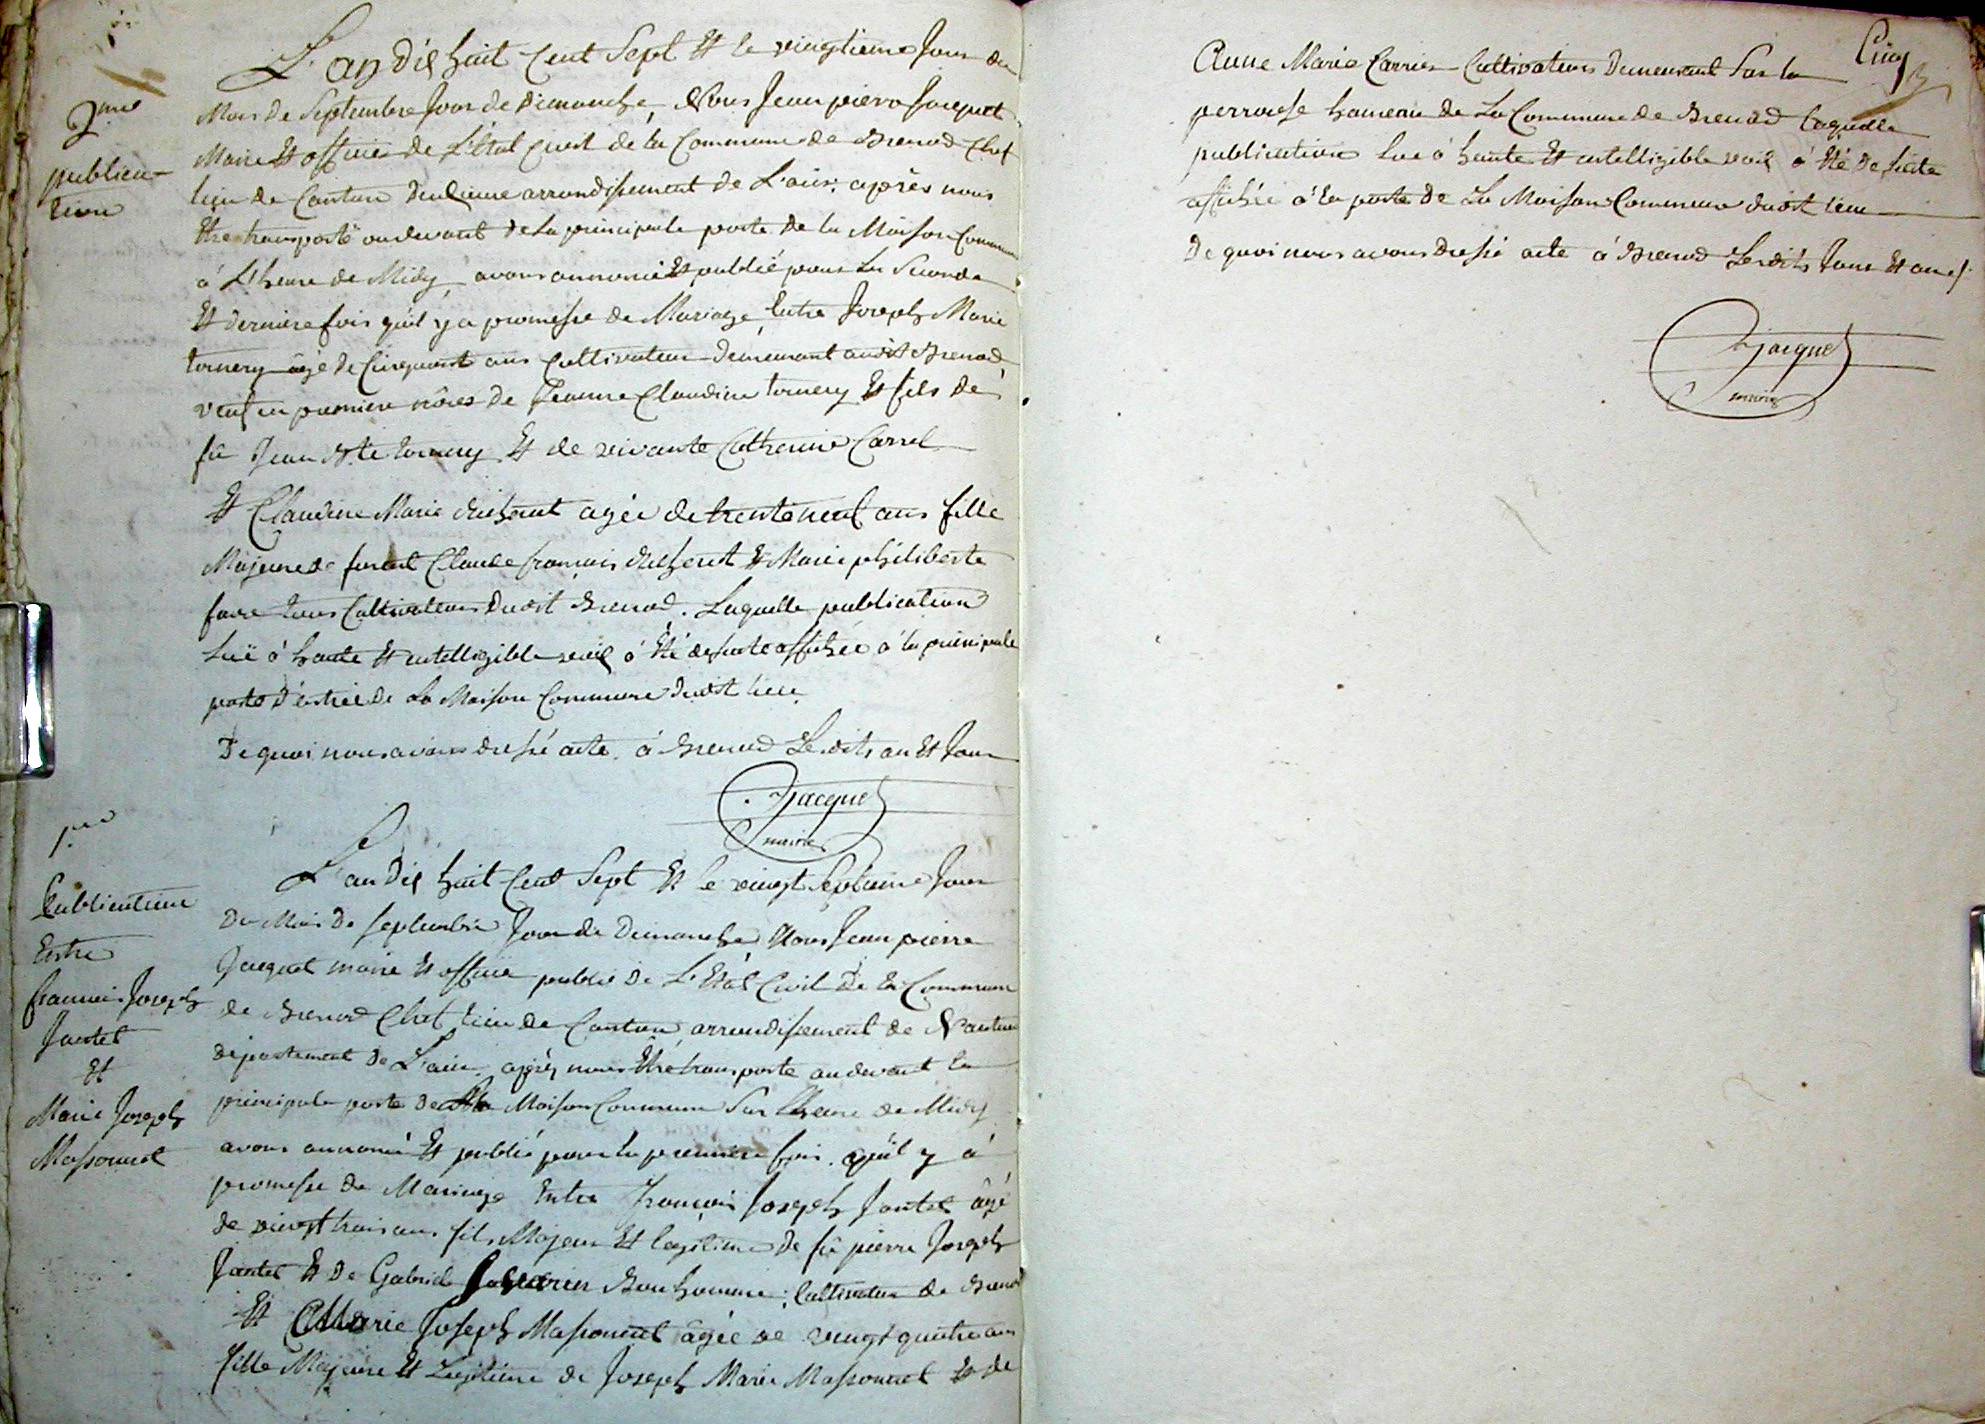 2me
publica-
tion
L'an dix huit cent sept Et le vingtieme Jour du
Mois de Septembre Jour de Dimanche, Nous Jean pierre Jacquet
Maire Et officier de L'État civil de la Commune de Brenod Chef
lieu de Canton deuxieme arrondissement de L'ain, après nous
Etre transporté au devant de la principale porte de la Maison Commune
à L'heure de Midy, avons annoncé Et publié pour la Seconde
Et derniere fois qu'il y a promesse de Mariage Entre Joseph Marie
tornery âgé de Cinquante ans Cultivateur demeurant audit Brenod
veuf en premiere nôces de Jeanne Claudine tornery Et fils de
fû Jean Bte tornery Et de vivante Catherine Carrel
Et Claudine Marie agée de trente neuf ans fille
Majeure de furent Claude françois Et Marie philiberte
favre tous Cultivateurs dudit Brenod. Laquelle publication
Luë à haute Et intelligible voix à Été de suite affichée à la principale
porte d'entrée de La Maison Commune dudit lieu
De quoi nous avons dressé acte à Brenod Lesdits an Et Jour
Jacquet
maire
1ere
Publication
Entre
francois Joseph
Jantet
Et
Marie Joseph
Massonnet
L'an dix huit Cent Sept Et le vingt Septieme Jour
Du Mois De septembre Jour de Dimanche Nous Jean pierre
Jacquet maire Et officie public de L'Etat Civil De la Commune
de Brenod Chef lieu de Canton arrondissement de Nantua
département de L'ain, après nous Etre transporte au devant la
principale porte de la Maison Commune Sur l'heure de Midy
avons annoncé Et publié pour la premiere fois qu'il y à
promesse de Mariage Entre François Joseph Jantet âgé
de vingt trois ans fils Majeur Et legitime de fû pierre Joseph
Jantet Et De Gabriel Bonhomme, Cultivateur de Brenod
Et Marie Joseph Massonnet âgée de vingt quatre ans
fille Majeure Et Legitime de Joseph Marie Massonnet Et de
Cinq
Anne Marie Carrier Cultivateurs Demeurant Sur la
perrouse hameau de La Commune de Brenod Laquelle
publication Lue à haute Et intelligible voix à Été De suite
affichée à la porte de La Maison Commune dudit lieu
De quoi nous avons Dressé acte à Brenod Lesdits Jour Et an
Jacquet
maire